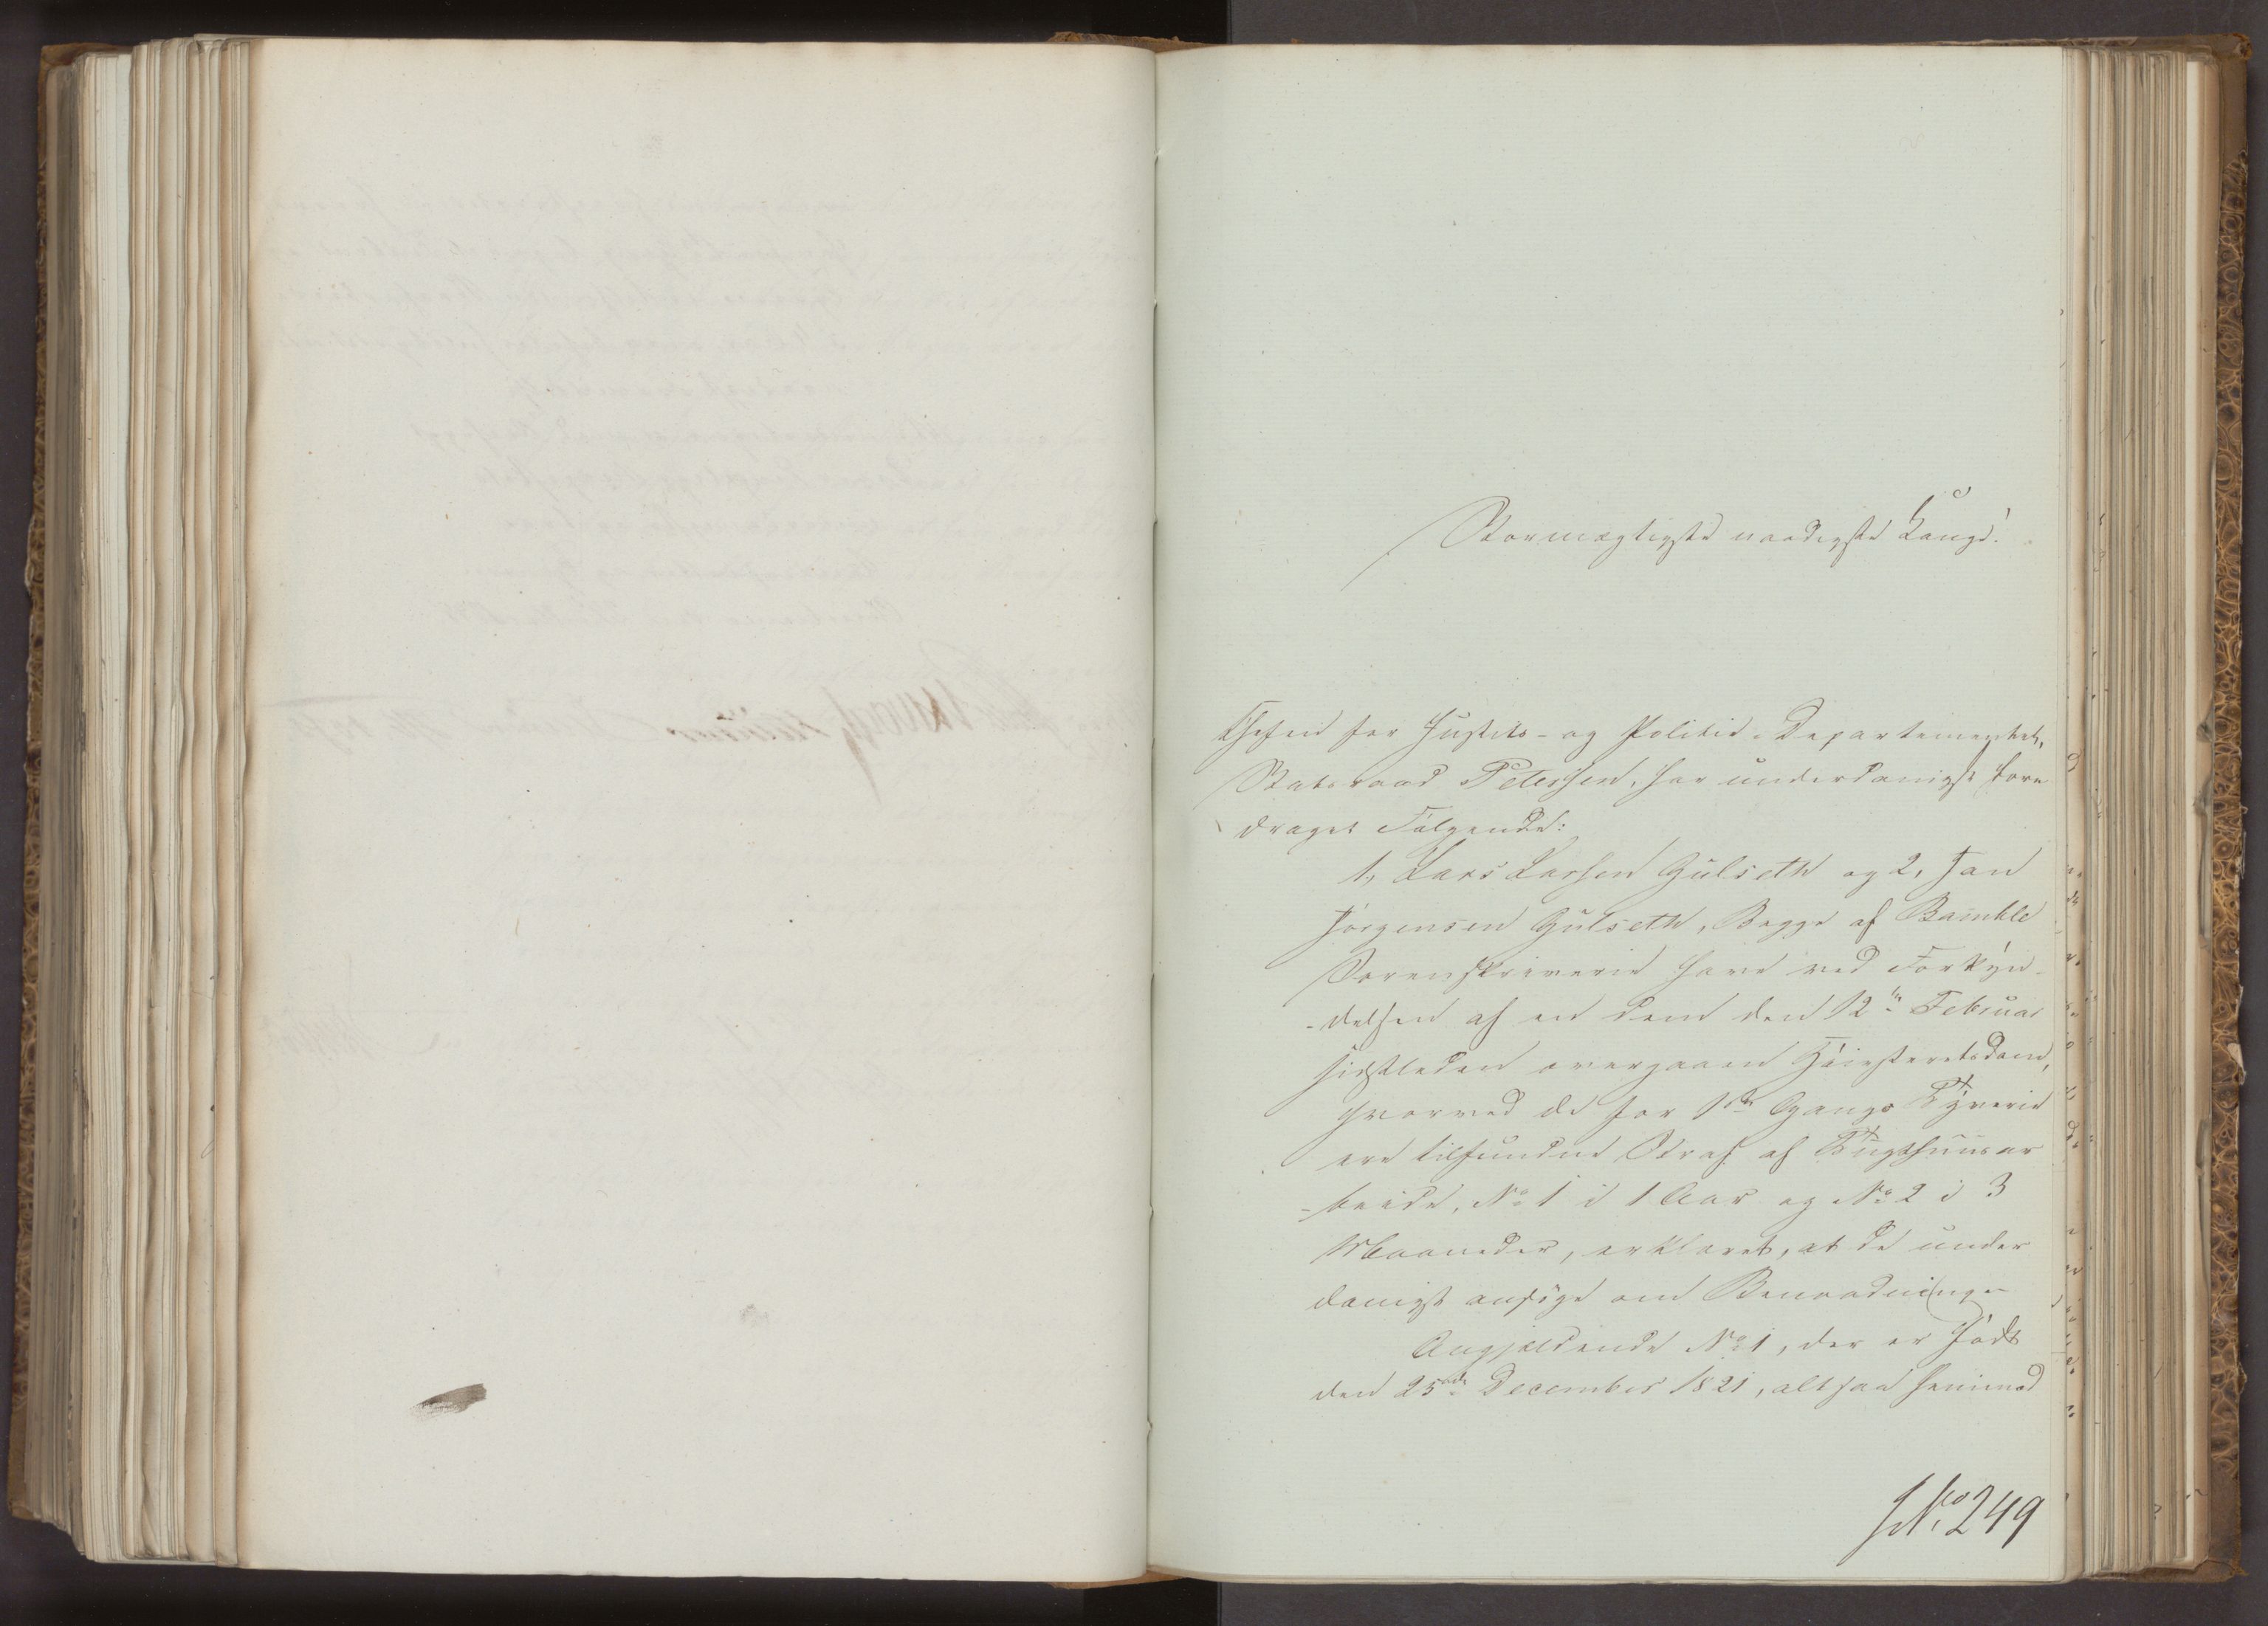 Stormægtigste naadigste Konge!
Chefen for Justits- og Politie-Departementet,
Statsraad Petersen, har underdanigst fore
draget Følgende:
1, Lars Larsen Gulseth og 2, Jan
Jørgensen Gulseth, Begge af Bamble
Sorenskriverie have ved Forkyn-
-delsen af en dem den 12te Februar
sidstleden overgaaen Høiesteretsdom,
hvorved de for 1ste Gangs Tyverie
ere tilfundne Straf af Tugthuusar
-beide, No 1 i 1 Aar og No 2 i 3
Maaneder, erklæret, at de under
danigst ansøge om Benaadning.
Angjældende No 1, der er født
den 25de December 1821, altsaa henimod
JNo. 249